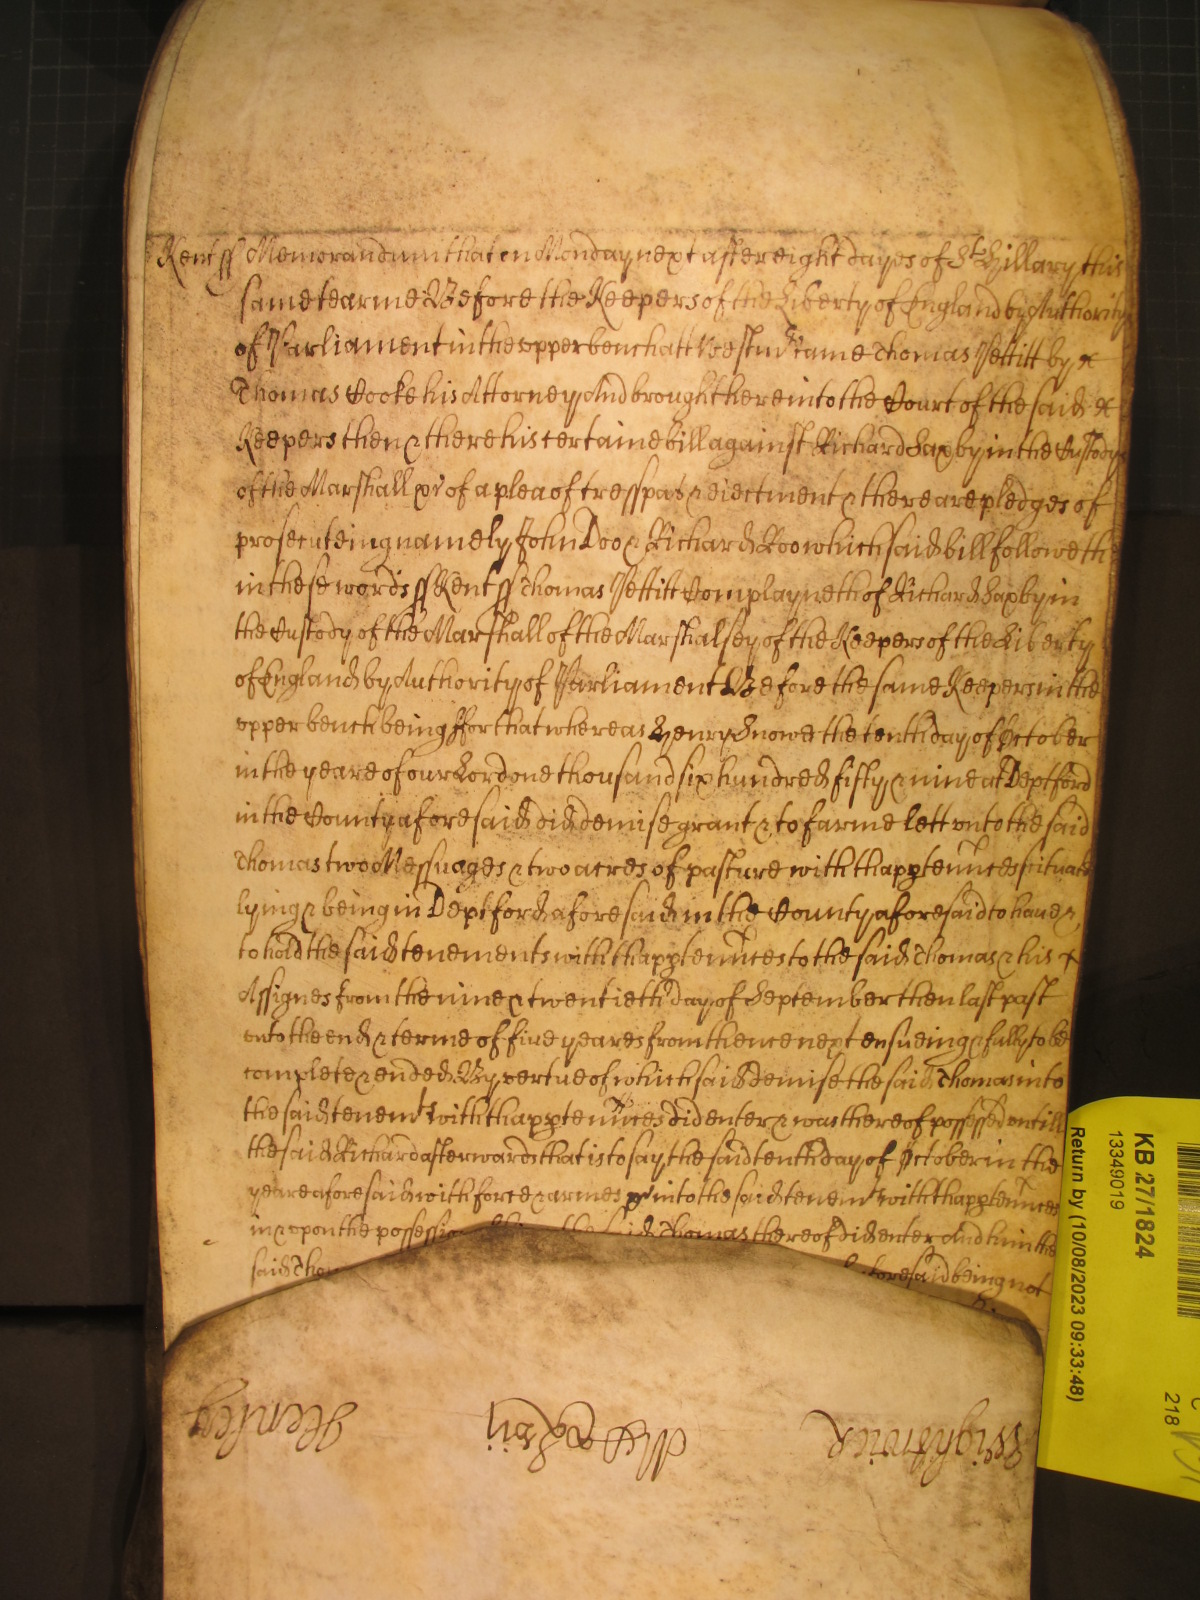 Kent ss Memorandum that on Monday next after eight dayes of St Hillary this
same tearme Before the Keepers of the Liberty of England by Authority
of Parliament in the upper bench att Westmr came Thomas Pettitt by
Thomas Cooke his Attorney And brought here into the Court of the said
Keepers then & there his certaine bill against Richard Saxby in the Custody
of the Marshall &c of a plea of tresspas & eiectment & there are pledges of
prosecuteing namely John Doo & Richard Roo which said bill followeth
in these words ss Kent ss Thomas Pettitt Complayneth of Richard Saxby in
the Custody of the Marshall of the Marshalsey of the Keepers of the Liberty
of England by Authority of Parliament Before the same Keepers in the
upper bench being ffor that whereas Henry Snowe the tenth day of October
in the yeare of our Lord one thousand six hundred fifty & nine at Deptford
in the County aforesaid did demise grant & to farme lett unto the said
Thomas two Messuages & two acres of pasture with thapptennces situate
lying & being in Deptford aforesaid in the County aforesaid to have &
to hold the said tenements with thapptennces to the said Thomas & his
Assignes from the nine & twentieth day of September then last past
unto the end & terme of five yeares from thence next ensueing & fully to be
complete & ended By vertue of which said demise the said Thomas into
the said tenemts with thapptennces did enter & was thereof possessed untill
the said Richard afterwards that is to say the said tenth day of October in the
yeare aforesaid with force & armes &c into the said tenemts with thapptennces
in & upon the possession said Thomas thereof did enter And him the
said Tho aforesaid being not
Wightwick
Henley
KB 27/1824
13349019
Return by (10/08/2023 09:33:48)
218